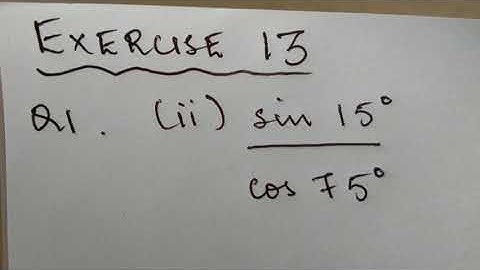 EXERCISE 13
Q1. (ii) sin 15°
cos 75°